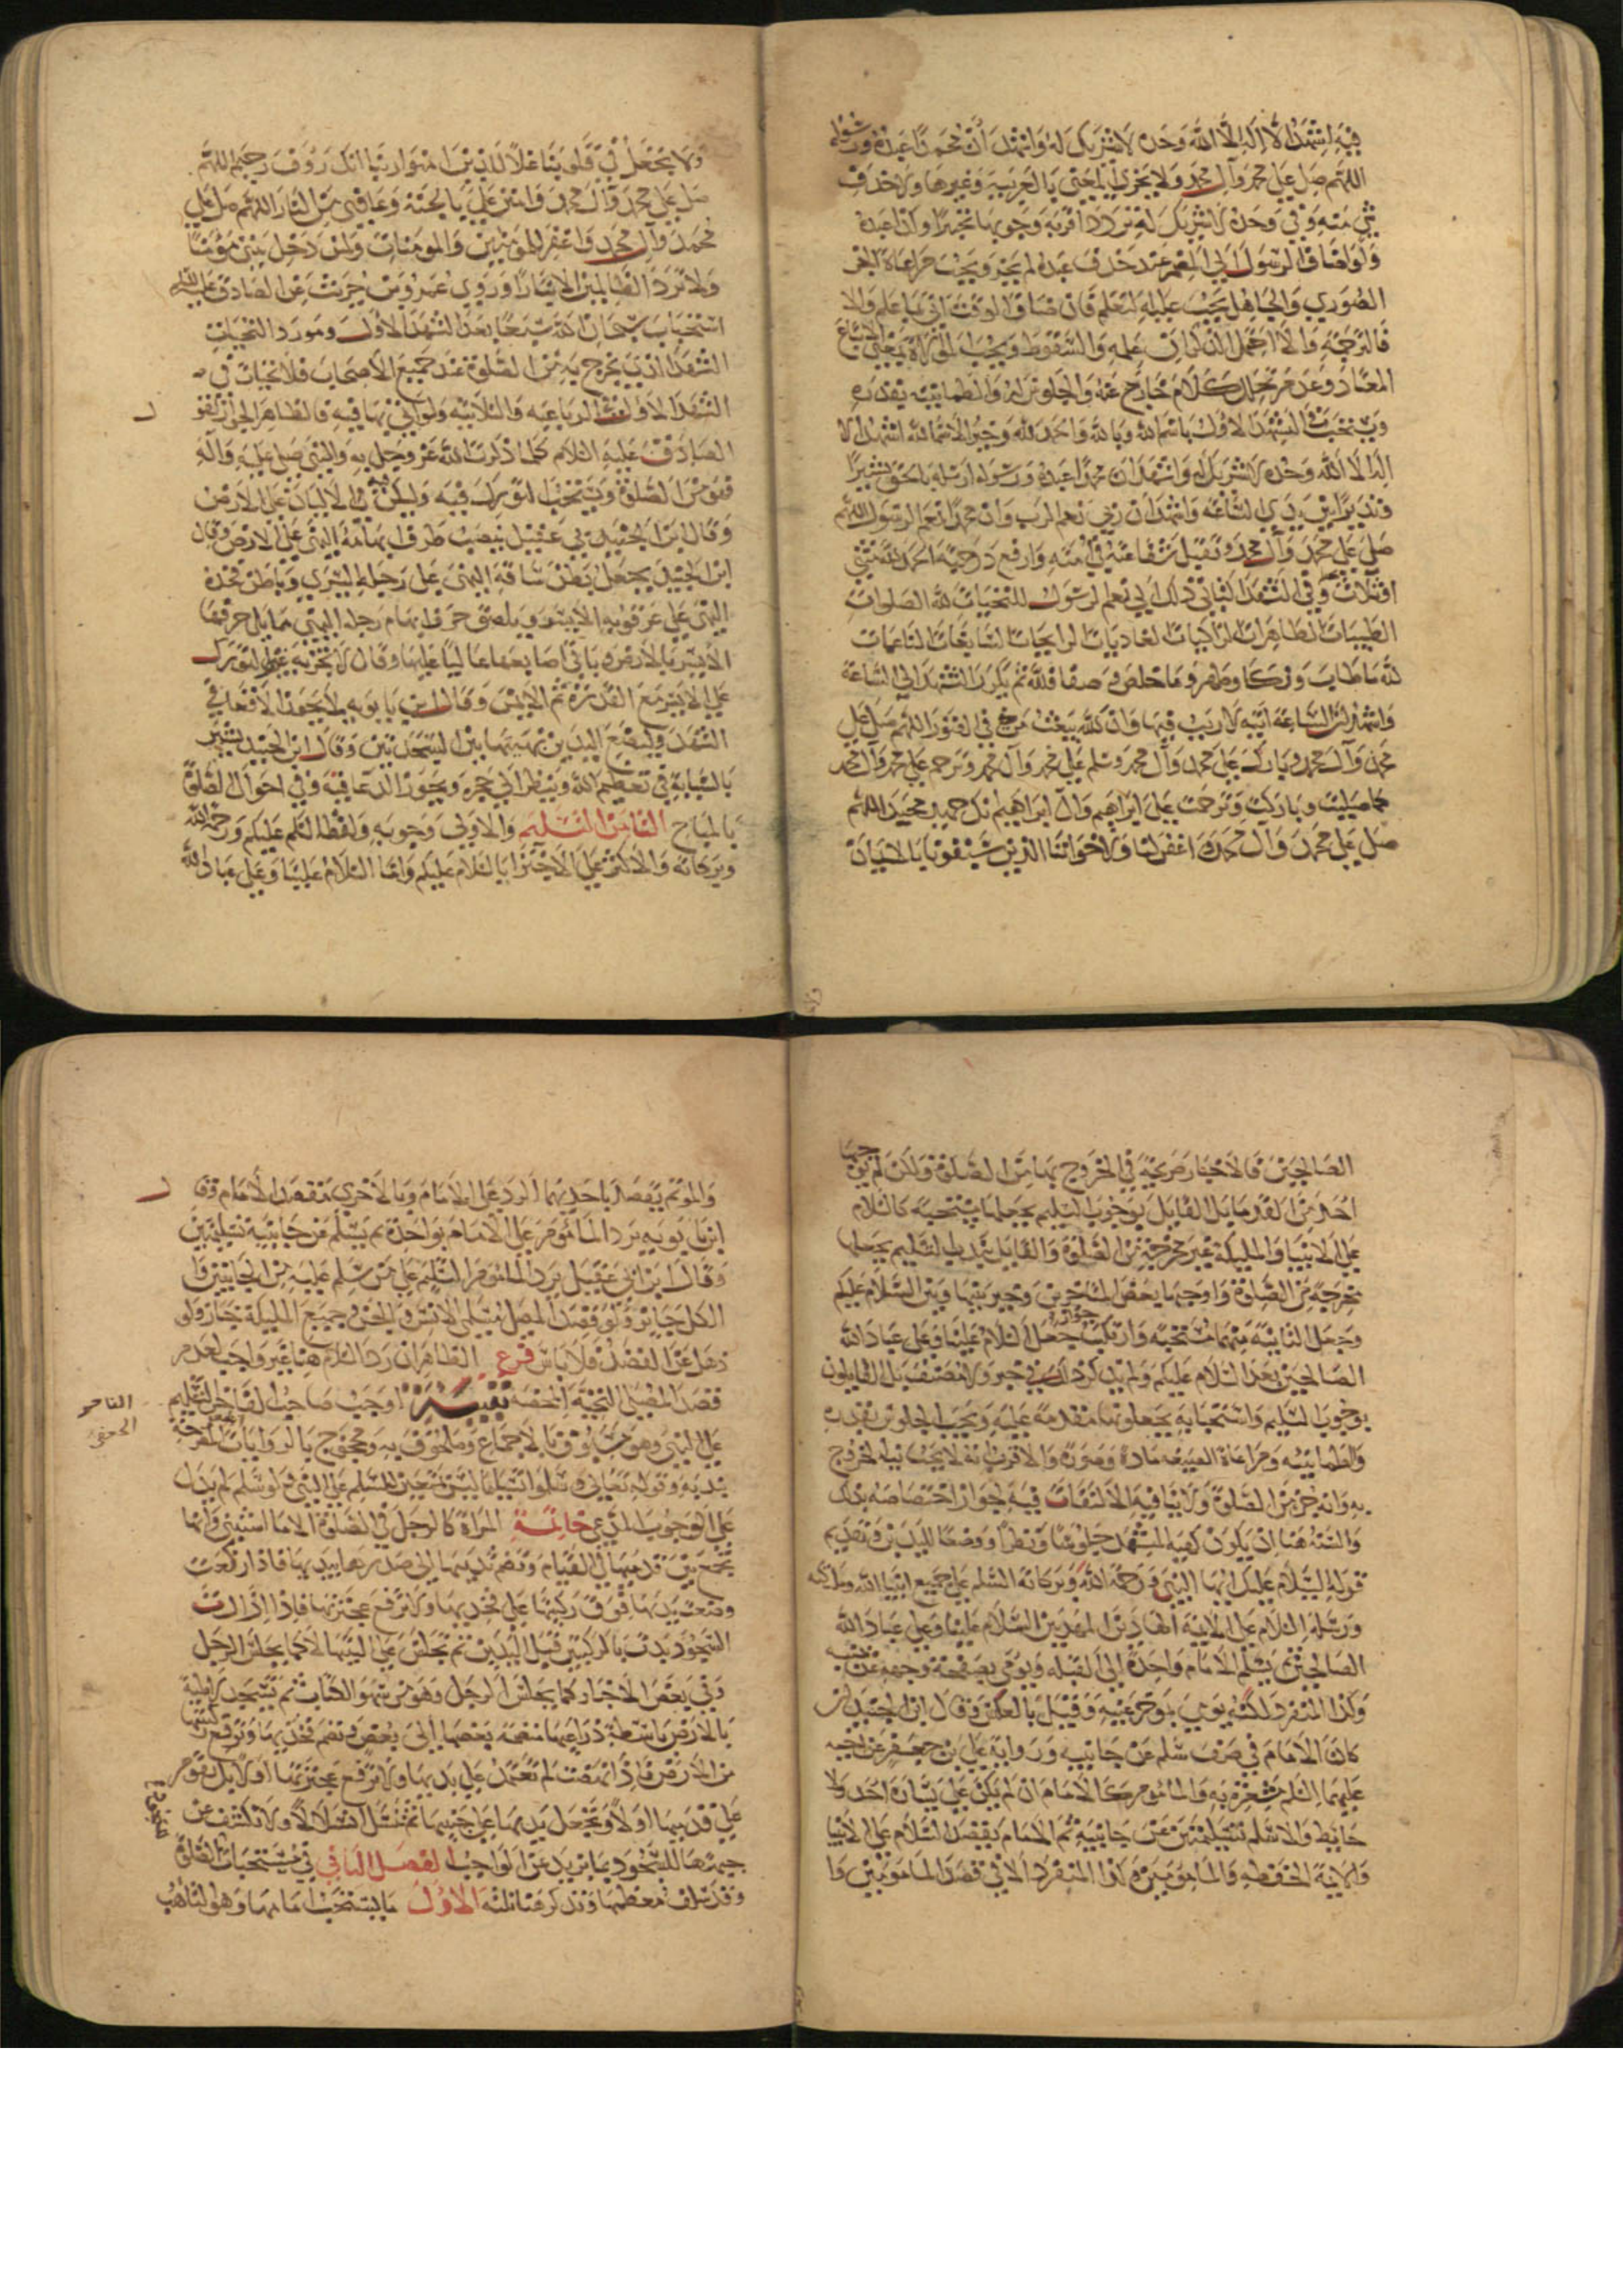 فيه اشهد ان لا اله الا الله وحده لا شريك له واشهد ان محمدا عبده ورسوله
اللهم صل على محمد وآل محمد ولا يجزي المعنى بالعربية وغيرها ولا حذف
شي منه وفي وحده لا شريك له تردد اقربه وجوبها تخييرا وان عبده
ولو اضاف الرسول الى المضمر عند حذف عبده لم يجز ويجب مراعاة
الضروري والجاهل يجب عليه التعلم فان ضاق الوقت اتى بما علم والا
فالترجمة والا احتمل الذكر ان علمه والسقوط ويجب الموالاة
المعتاد وعدم تخلل كلام خارج عنه والجلوس له والطمانينة بقدره
ويستحب في التشهد الاول باسم الله وبالله والحمد لله وخير الاسما لله اشهد ان لا
اله الا الله وحده لا شريك له واشهد ان محمدا عبده ورسوله ارسله بالحق بشيرا
ونذيرا بين يدي الساعة واشهد ان ربي نعم الرب وان محمدا نعم الرسول اللهم
صل على محمد وآل محمد وتقبل شفاعته في امته وارفع درجته الحمد لله مرتين
او ثلاثا وفي التشهد الثاني ذلك الى نعم الرسول التحيات لله الصلوات
الطيبات الطاهرات الزاكيات الغاديات الرايحات السابغات الناعمات
لله ما طاب وزكا وطهر وما خلص وصفا فلله ثم يكرر التشهد الى الساعة
واشهد ان الساعة آتية لا ريب فيها وان الله يبعث من في القبور اللهم صل على
محمد وآل محمد وبارك على محمد وآل محمد وسلم على محمد وآل محمد وترحم على محمد وآل محمد
كما صليت وباركت وترحمت على ابراهيم وآل ابراهيم انك حميد مجيد اللهم
صل على محمد وآل محمد واغفر لنا ولاخواننا الذين سبقونا بالايمان
ولا تجعل في قلوبنا غلا للذين امنوا ربنا انك رؤف رحيم اللهم
صل على محمد وآل محمد وامنن علي بالجنة وعافني من النار اللهم صل على
محمد وآل محمد واغفر للمومنين والمومنات ولمن دخل بيتي مؤمنا
ولا تزد الظالمين الا تبارا وروى عمرو بن حريث عن الصادق عليه السلم
استحباب سبحان الله سبعا بعد التشهد الاول ومورد التحيات
التشهد الذي يخرج به من الصلوة عند جميع الاصحاب فلا تحيات في
التشهد الاول في الرباعية والثلاثية ولو اتى بها فيه فالظاهر الجواز لقول
الصادق عليه السلام كلما ذكرت الله عز وجل به والنبي صلى عليه وآله
فهو من الصلوة ويستحب التورك فيه وليكن فيه الاليان على الارض
وقال ابن الجنيد بن عقيل ينصب طرف ابهامه اليمنى على الارض وقال
ابن الجنيد يجعل بطن ساقه اليمنى على رجله اليسرى وباطن فخذه
اليمنى على عرقوبه الايسر ويلصق حرف ابهام رجله اليمنى مما يلي حرفها
الايسر بالارض وباقي اصابعها عاليا عليها وقال لا يجزيه غير التورك
على الايسر مع القدرة ثم الايمن وقال ابن بابويه لا يجوز الاقعا في
التشهد وليضع اليدين بهيئتهما بين السجدتين وقال ابن الجنيد يشير
بالسبابة في تعظيم الله وينظر الى حجره ويجوز الدعا فيه وفي احوال الصلوة
بالمباح الثامن التسليم والاولى وجوبه ولفظه السلم عليكم ورحمة الله
وبركاته والاكثر على الاجتزا بالسلام عليكم واما السلام علينا وعلى عباد الله
الصالحين فالاخبار صريحة في الخروج بها من الصلوة ولكن لم يوجبها
احد من القدما بل القايل بوجوب التسليم يجعلها مستحبة كالسلام
على الانبيا والمليكة غير مخرجة من الصلوة والقايل بندب التسليم يجعلها
مخرجة من الصلوة واوجبها بعض المتاخرين وخير بينها وبين السلام عليكم
وجعل الثانية منهما مستحبة وارتكب جواز جعل السلام علينا وعلى عباد الله
الصالحين بعد السلام عليكم ولم يذكر ذلك في خبر ولا مصنف بل القايلون
بوجوب التسليم واستحبابه يجعلونها مقدمة عليه ويجب الجلوس بقدره
والطمانينة ومراعاة الصيغة مادة وصورة والاقرب انه لا يجب نية الخروج
به وانه جزء من الصلوة ولا ينافيه الالتفات فيه لجواز اختصاصه بذلك
والسنة هنا ان يكون كهية المتشهد جلوسا ونظرا ووضعا لليدين وتقديم
قوله السلام عليك ايها النبي ورحمة الله وبركاته السلم على جميع انبيا الله وملايكته
ورسله السلام على الايمة الهادين المهديين السلام علينا وعلى عباد الله
الصالحين ثم يسلم الامام واحدة الى القبلة ويومي بصفحة وجهه عن يمينه
وكذا المنفرد لكنه يومي بموخر عينيه وقيل بالعكس وقال ابن الجنيد ان
كان الامام في صف سلم عن جانبيه ورواية علي بن جعفر عن اخيه
عليهما السلم مشعرة به والماموم مع الامام ان لم يكن على يساره احد ولا
حايط والا سلم تسليمتين عن جانبيه ثم الامام يقصد السلام على الانبيا
والايمة والحفظة والمامومين وكذا المنفرد الا في قصد المامومين وا
والموتم يقصد باحديهما الرد على الامام وبالاخرى مقصد الامام وقال
ابن بابويه يرد الماموم على الامام بواحدة ثم يسلم عن جانبيه تسليمتين
وقال ابن ابي عقيل يرد الماموم السلم على من سلم عليه من الجانبين وا
الكل جايز ولو قصد المصلي مسلمي الانس والجن وجميع المليكة جاز ولو
ذهل عن القصد فلا باس فرع الظاهر ان رد السلام هنا غير واجب لعدم
قصد المصلي التحية المحضة تنبيه اوجب صاحب الفاخر التسليم
على النبي وهو مسبوق بالاجماع وملحوق به ومحجوج بالروايات المصرحة
بندبه وقوله تعالى وسلموا تسليما ليس بتعين للسلم على النبي ولو سلم لم يدل
على الوجوب المدعى خاتمة المراة كالرجل في الصلوة الا ما استثني وانها
تجمع بين قدميها في القيام وتضم ثدييها الى صدرها بيديها فاذا ركعت
وضعت يديها فوق ركبتيها على فخذيها ولا ترفع عجيزتها فاذا ارادت
السجود بدت بالركبتين قبل اليدين ثم تجلس على اليتيها لا كما يجلس الرجل
وفي بعض الاخبار كما يجلس الرجل وهو من سهو الكتاب ثم تسجد لاطية
بالارض باسطة ذراعيها منضمة بعضها الى بعض وتضم فخذيها وترفع ركبتيها
من الارض فاذا نهضت لم تعتمد على يديها ولا ترفع عجيزتها اولا بل تقوم
على قدميها اولا وتجعل يديها على جنبيها تنسل انسلالا ولا تكشف عن
جبهتها للسجود بما يزيد عن الواجب الفصل الثاني في مستحبات الصلوة
وقد سلف معظمها ونذكر هنا ثلثة الاول ما يستحب امامها وهو التاهب